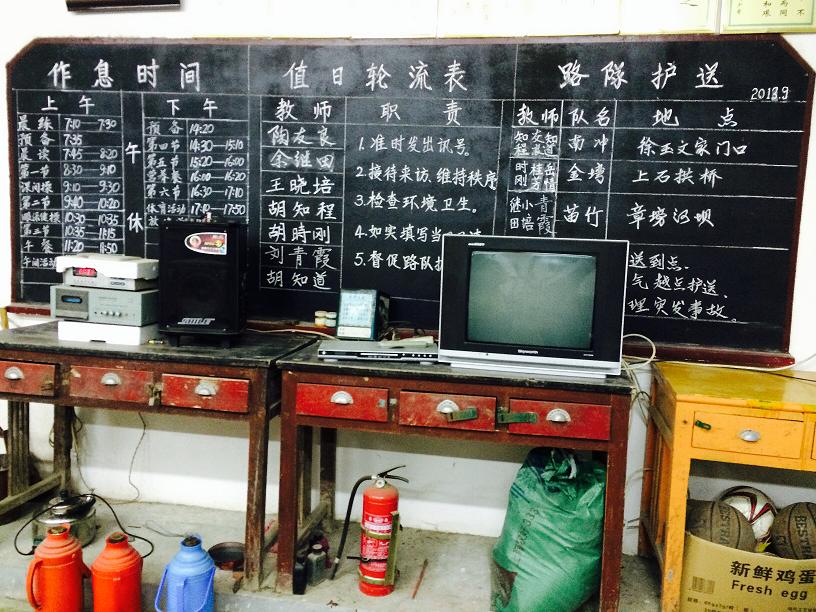 作息时间
上午
下午
晨练 7:10 - 7:30
预备 7:35
晨读 7:45 8:20
第一节 8:30 9:10
课间操 9:10 9:30
第二节 9:40 10:20
眼保健操 10:30 10:35
第三节 10:35 11:15
午餐 11:20 11:50
午间活动
午
休
预备 14:20
第四节 14:30 - 15:10
第五节 15:20 - 16:00
营养餐 16:00 - 16:20
第六节 16:30 - 17:10
体育活动 17:10 - 17:50
放
值日轮流表
教师
职责
陶友良
余继田
王晓培
胡知程
胡時刚
刘青霞
胡知道
1.准时发出讯号。
2.接待来访,维持秩序
3.检查环境卫生。
4.如实填写当
5.督促路队
路隊护送
2013.9
教师
队名
地点
南冲
徐玉文家门口
金塆
上石拱桥
苗竹
送到点.
气越点护送.
理突发事故。
Skyworth
新鲜鸡蛋
Fresh egg